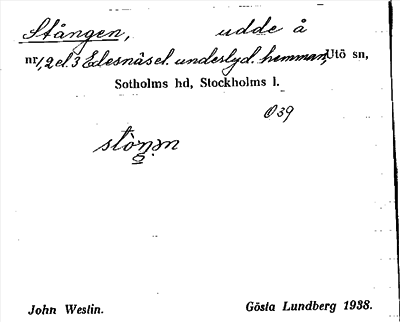 Stången, udde å
nr 1, 2 el. 3 Edesnäs el. underlyd. hemman, Utö sn,
Sotholms hd, Stockholms l.
Ö 39
John Westin. Gösta Lundberg 1938.